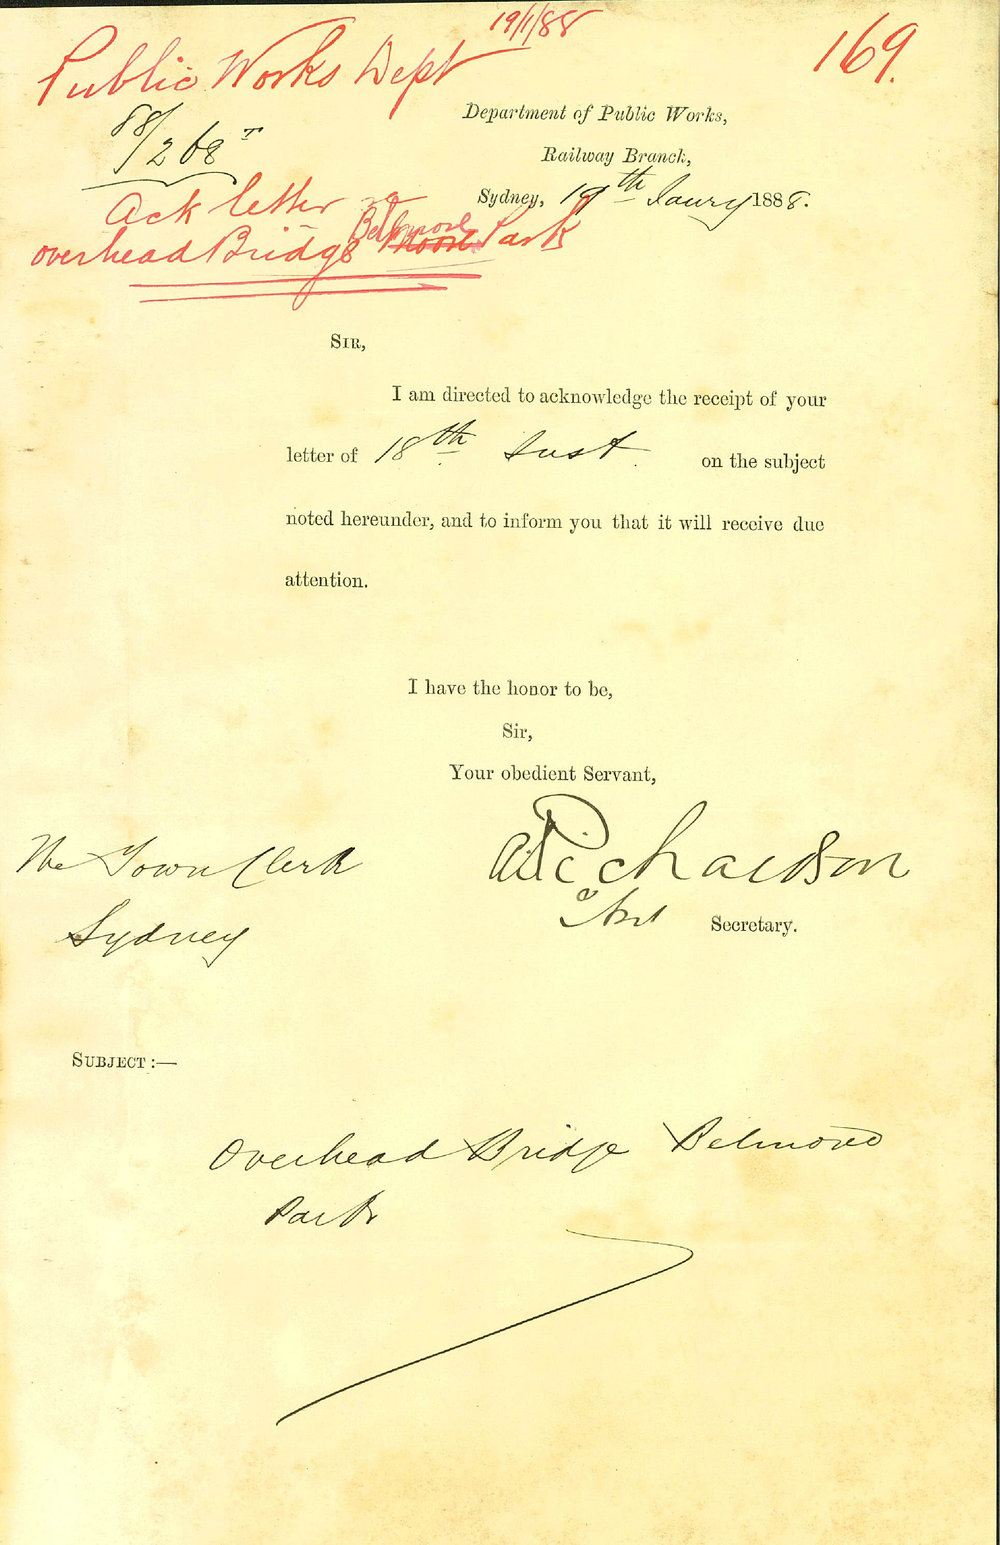 19/1/88
169.
Public Works Dept
Department of Public Works,
88/268 T
Railway Branch,
Sydney, 19th Janry 1888.
Ack letter re
overhead Bridge Belmore Moore Park
SIR,
I am directed to acknowledge the receipt of your
letter of 18th Inst. on the subject
noted hereunder, and to inform you that it will receive due
attention.
I have the honor to be,
Sir,
Your obedient Servant,
The Town Clerk
Richardson
Secretary.
Sydney
SUBJECT :—
Overhead Bridge Belmore
Park